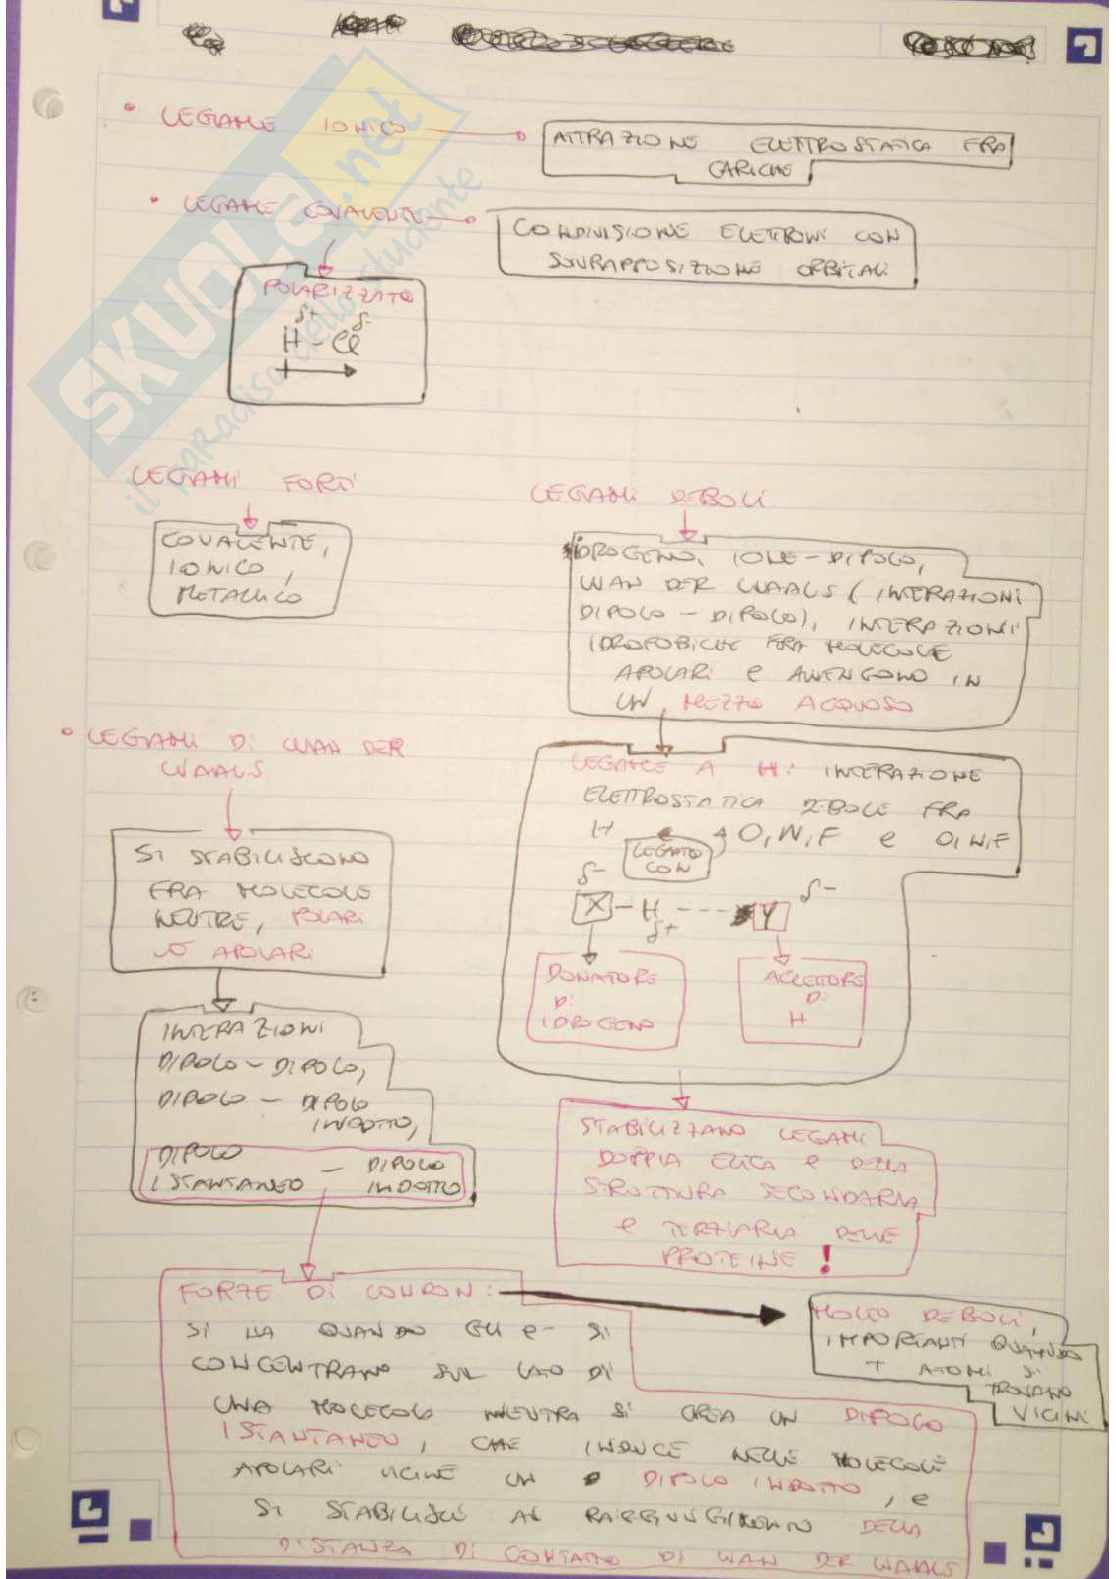 • LEGAME IONICO
ATTRAZIONE ELETTROSTATICA FRA
CARICHE
• LEGAME COVALENTE
CONDIVISIONE ELETTRONI CON
SOVRAPPOSIZIONE ORBITALI
POLARIZZATO
δ+ δ-
H - Cl
SKUOLA.net
il paradiso dello studente
LEGAMI FORTI
COVALENTE,
IONICO,
METALLICO
LEGAMI DEBOLI
IDROGENO, IONE-DIPOLO,
WAN DER WAALS (INTERAZIONI
DIPOLO - DIPOLO), INTERAZIONI
IDROFOBICHE FRA MOLECOLE
APOLARI e AVVENGONO IN
UN MEZZO ACQUOSO
• LEGAMI DI WAN DER
WAALS
SI STABILISCONO
FRA MOLECOLE
NEUTRE, POLARI
O APOLARI
INTERAZIONI
DIPOLO - DIPOLO,
DIPOLO - DIPOLO
INDOTTO,
DIPOLO
ISTANTANEO - DIPOLO
INDOTTO
LEGAME A H: INTERAZIONE
ELETTROSTATICA DEBOLE FRA
H LEGATO CON O, N, F e O, N, F
δ- δ-
X - H ---- Y
δ+
DONATORE
DI
IDROGENO
ACCETTORE
DI
H
STABILIZZANO LEGAMI
DOPPIA ELICA e DELLA
STRUTTURA SECONDARIA
e TERZIARIA DELLE
PROTEINE !
FORZE DI LONDON:
SI HA QUANDO GLI e- SI
CONCENTRANO SUL LATO DI
UNA MOLECOLA NEUTRA SI CREA UN DIPOLO
ISTANTANEO, CHE INDUCE NELLE MOLECOLE
APOLARI VICINE UN DIPOLO INDOTTO, e
SI STABILISCE AL RAGGIUNGIMENTO DELLA
DISTANZA DI CONTATTO DI WAN DER WAALS
MOLTO DEBOLI,
IMPORTANTI QUANDO
+ ATOMI SI
TROVANO
VICINI